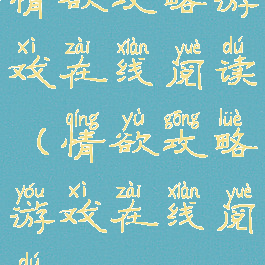 情欲攻略游
xì zài xiàn yuè dú
戏在线阅读
qíng yù gōng lüè
(情欲攻略
yóu xì zài xiàn yuè
游戏在线阅
dú